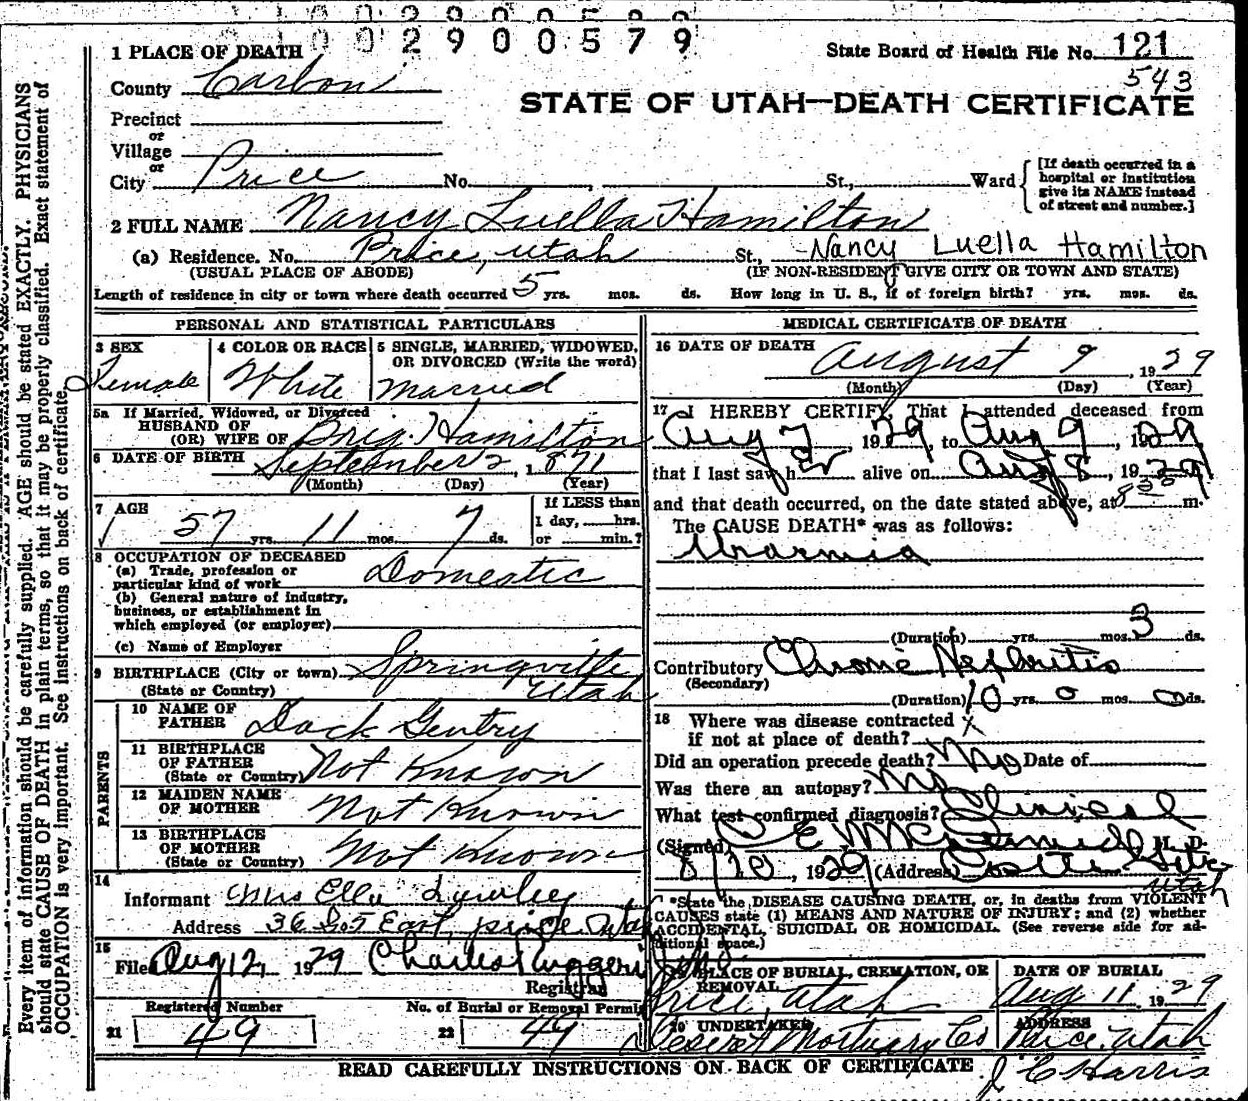 0 0 2 9 0 0 5 7 9
1 PLACE OF DEATH
State Board of Health File No. 121
543
County Carbon
STATE OF UTAH—DEATH CERTIFICATE
Precinct
or
Village
or
City Price No. , St., Ward
[If death occurred in a hospital or institution give its NAME instead of street and number.]
2 FULL NAME Nancy Luella Hamilton
(a) Residence. No. Price, Utah St., Nancy Luella Hamilton
(USUAL PLACE OF ABODE) (IF NON-RESIDENT GIVE CITY OR TOWN AND STATE)
Length of residence in city or town where death occurred 5 yrs. mos. ds. How long in U. S., if of foreign birth? yrs. mos. ds.
PERSONAL AND STATISTICAL PARTICULARS
3 SEX
Female
4 COLOR OR RACE
White
5 SINGLE, MARRIED, WIDOWED, OR DIVORCED (Write the word)
Married
5a If Married, Widowed, or Divorced
HUSBAND OF
(OR) WIFE OF Brig. Hamilton
6 DATE OF BIRTH September 2, 1871
(Month) (Day) (Year)
7 AGE
57 yrs. 11 mos. 7 ds.
If LESS than
1 day, hrs.
or min.?
8 OCCUPATION OF DECEASED
(a) Trade, profession or
particular kind of work Domestic
(b) General nature of industry,
business, or establishment in
which employed (or employer)
(c) Name of Employer
9 BIRTHPLACE (City or town) Springville
(State or Country) Utah
PARENTS
10 NAME OF
FATHER Dock Gentry
11 BIRTHPLACE
OF FATHER
(State or Country) Not Known
12 MAIDEN NAME
OF MOTHER Not Known
13 BIRTHPLACE
OF MOTHER
(State or Country) Not Known
14
Informant Mrs Ella
Address 36 So. 5 East, price. Utah
15
Filed Aug 12, 1929 Charles Ruggeri
Registrar
Registered Number
21 49
No. of Burial or Removal Permit
22 49
MEDICAL CERTIFICATE OF DEATH
16 DATE OF DEATH
August 9, 1929
(Month) (Day) (Year)
17 I HEREBY CERTIFY, That I attended deceased from
Aug 7, 1929, to Aug 9, 1929,
that I last saw her alive on Aug 8, 1929
and that death occurred, on the date stated above, at 8 m.
The CAUSE DEATH* was as follows:
Uraemia
(Duration) yrs. mos. 3 ds.
Contributory Chronic Nephritis
(Secondary)
(Duration) 10 yrs. 0 mos. 0 ds.
18 Where was disease contracted
if not at place of death? x
Did an operation precede death? No Date of
Was there an autopsy? No
What test confirmed diagnosis? Clinical
(Signed) C E McDermid M. D.
8/10, 1929 (Address) Castle Gate
Utah
*State the DISEASE CAUSING DEATH, or, in deaths from VIOLENT
CAUSES state (1) MEANS AND NATURE OF INJURY; and (2) whether
ACCIDENTAL, SUICIDAL OR HOMICIDAL. (See reverse side for ad-
ditional space.)
19 PLACE OF BURIAL, CREMATION, OR
REMOVAL
Price, Utah
DATE OF BURIAL
Aug 11, 1929
20 UNDERTAKER
Deseret Mortuary Co
ADDRESS
Price, Utah
READ CAREFULLY INSTRUCTIONS ON BACK OF CERTIFICATE
J E Harris
Every item of information should be carefully supplied. AGE should be stated EXACTLY. PHYSICIANS
should state CAUSE OF DEATH in plain terms, so that it may be properly classified. Exact statement of
OCCUPATION is very important. See instructions on back of certificate.